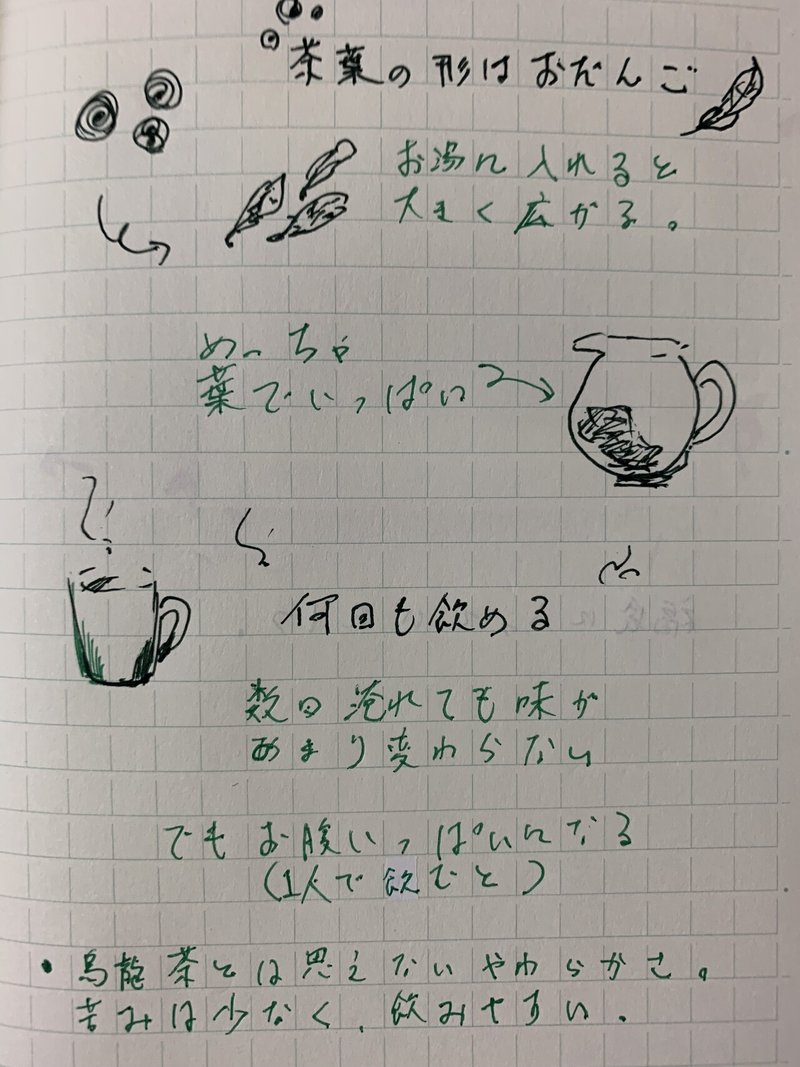 茶葉の形はおだんご
お湯に入れると
大きく広がる。
めっちゃ
葉でいっぱい
何回も飲める
数回淹れても味が
あまり変わらない
でもお腹いっぱいになる
(1人で飲むと)
・烏龍茶とは思えないやわらかさ。
苦みは少なく、飲みやすい。